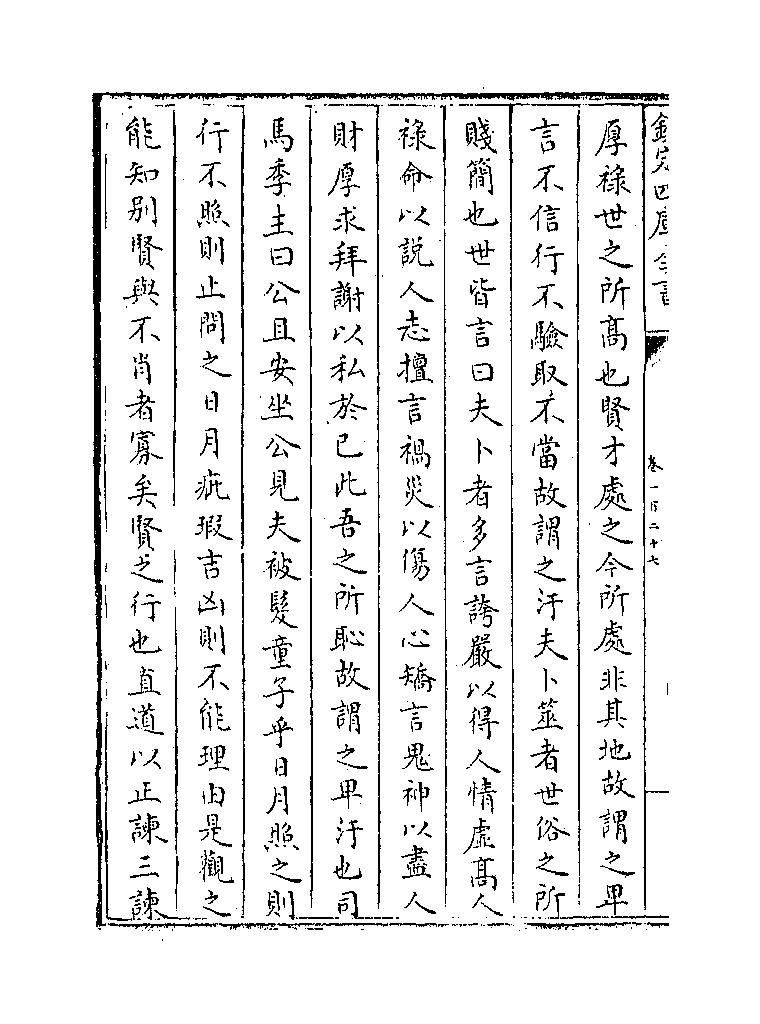 欽定四庫全書
卷一百二十七
厚祿世之所髙也賢才處之今所處非其地故謂之卑
言不信行不驗取不當故謂之汙夫卜筮者世俗之所
賤簡也世皆言曰夫卜者多言誇嚴以得人情虛髙人
祿命以說人志擅言禍災以傷人心矯言鬼神以盡人
財厚求拜謝以私於已此吾之所恥故謂之卑汙也司
馬季主曰公且安坐公見夫被髮童子乎日月照之則
行不照則止問之日月疵瑕吉凶則不能理由是觀之
能知别賢與不肖者寡矣賢之行也直道以正諫三諫